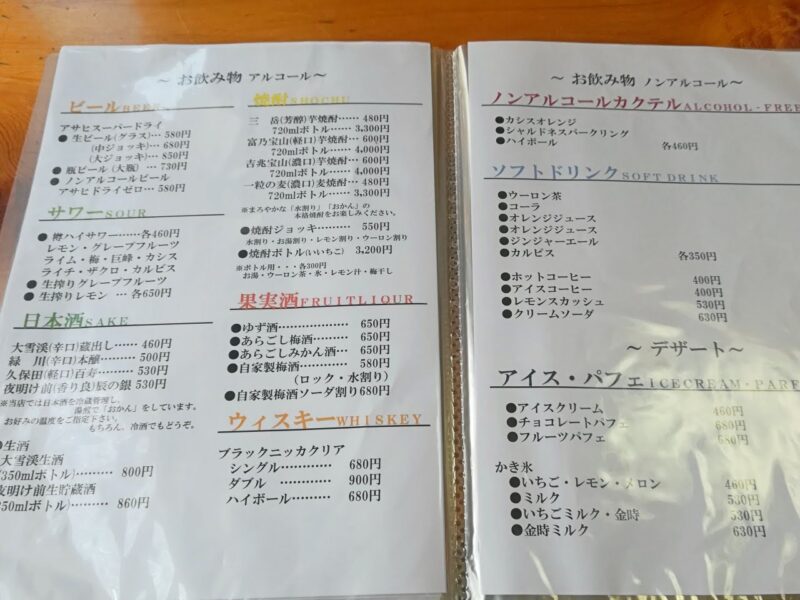 ～ お飲み物 アルコール～
ビール BEER
アサヒスーパードライ
● 生ビール(グラス)… 580円
(中ジョッキ)… 680円
(大ジョッキ)… 850円
● 瓶ビール (大瓶) … 730円
● ノンアルコールビール
アサヒドライゼロ… 580円
サワー SOUR
● 樽ハイサワー………各460円
レモン・グレープフルーツ
ライム・梅・巨峰・カシス
ライチ・ザクロ・カルピス
● 生搾りグレープフルーツ
● 生搾りレモン … 各650円
日本酒 SAKE
大雪渓(辛口)蔵出し…… 460円
緑 川(辛口)本醸…… 500円
久保田(軽口)百寿…… 530円
夜明け前(香り良)辰の銀 530円
※当店では日本酒を冷蔵管理し、
湯煎で「おかん」をしています。
お好みの温度をご指定下さい。
もちろん、冷酒でもどうぞ。
●生酒
大雪渓生酒
(350mlボトル)…… 800円
夜明け前生貯蔵酒
50mlボトル)…… 860円
焼酎 SHOCHU
三 岳(芳醇)芋焼酎…… 480円
720mlボトル… 3,300円
富乃宝山(軽口)芋焼酎… 600円
720mlボトル… 4,000円
吉兆宝山(濃口)芋焼酎… 600円
720mlボトル… 4,000円
一粒の麦(濃口)麦焼酎… 480円
720mlボトル… 3,300円
※まろやかな「水割り」「おかん」の
本格焼酎をお楽しみください。
●焼酎ジョッキ………… 550円
水割り・お湯割り・レモン割り・ウーロン割り
●焼酎ボトル(いいちこ) 3,200円
※ボトル用・・・各300円
お湯・ウーロン茶・氷・レモン汁・梅干し
果実酒 FRUITLIOUR
●ゆず酒……………… 650円
●あらごし梅酒……… 650円
●あらごしみかん酒… 650円
●自家製梅酒………… 580円
(ロック・水割り)
●自家製梅酒ソーダ割り680円
ウィスキー WHISKEY
ブラックニッカクリア
シングル………… 680円
ダブル ………… 900円
ハイボール……… 680円
～ お飲み物 ノンアルコール～
ノンアルコールカクテル ALCOHOL-FREE
●カシスオレンジ
●シャルドネスパークリング
●ハイボール 各460円
ソフトドリンク SOFT DRINK
●ウーロン茶
●コーラ
●オレンジジュース
●オレンジジュース
●ジンジャーエール
●カルピス 各350円
●ホットコーヒー 400円
●アイスコーヒー 400円
●レモンスカッシュ 530円
●クリームソーダ 630円
～ デザート～
アイス・パフェ ICECREAM・PARF
●アイスクリーム 460円
●チョコレートパフェ 680円
●フルーツパフェ 680円
かき氷
●いちご・レモン・メロン 460円
●ミルク 530円
●いちごミルク・金時 530円
●金時ミルク 630円